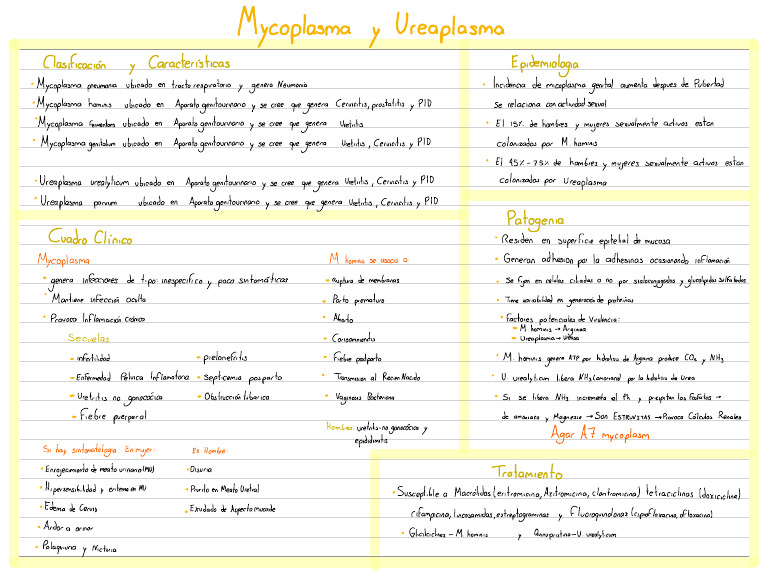 Mycoplasma y Ureaplasma
Clasificación y Características
• Mycoplasma pneumona ubicado en tracto respiratorio y genera Neumonia
• Mycoplasma hominis ubicado en Aparato genitourinario y se cree que genera Cervicitis, prostatitis y PID
• Mycoplasma fermentans ubicado en Aparato genitourinario y se cree que genera Uretitis
• Mycoplasma genitalium ubicado en Aparato genitourinario y se cree que genera Uretitis, Cervicitis y PID
• Ureaplasma urealyticum ubicado en Aparato genitourinario y se cree que genera Uretitis, Cervicitis y PID
• Ureaplasma parvum ubicado en Aparato genitourinario y se cree que genera Uretitis, Cervicitis y PID
Epidemiologia
• Incidencia de micoplasma genital aumenta despues de Pubertad
Se relaciona con actividad sexual
• El 15% de hombres y mujeres sexualmente activos estan
colonizados por M. hominis
• El 45% - 75% de hombres y mujeres sexualmente activos estan
colonizados por Ureaplasma
Cuadro Clínico
Mycoplasma
• genera infecciones de tipo: inespecifico y poco sintomáticas
• Mantiene infección oculta
• Provoca Inflamación Crónica
Secuelas
- infertilidad
- Enfermedad Pelvica Inflamatoria
- Uretritis no gonocócica
- Fiebre puerperal
- pielonefritis
- Septicemia posparto
- Obstrucción tubarica
M hominis se asocia a
- Ruptura de membranas
- Parto prematuro
- Aborto
- Corioamnionitis
- Fiebre postparto
- Transmision al Recien Nacido
- Vaginosis Bacteriana
Hombres: uretritis no gonocócica y
epididimitis
Si hay sintomatologia En mujer:
• Enrojecimiento de meato urinario (MU)
• Hipersensibilidad y eritema en MU
• Edema de Cervix
• Ardor a orinar
• Polaquiuria y Nicturia
En Hombre:
• Disuria
• Prurito en Meato Uretral
• Exudado de Aspecto mucoide
Patogenia
• Residen en superficie epitelial de mucosa
• Generan adhesion por la adhesinas ocasionando inflamación
• Se fijan en celulas ciliadas o no por sialoconjugados y glucolipidos sulfatados
• Tiene variabilidad en generación de proteinas
• Factores potenciales de Virulencia:
- M. hominis → Arginina
- Ureaplasma → Ureasa
• M. hominis genera ATP por hidrolisis de Arginina produce CO₂ y NH₃
• U urealyticum libera NH₃ (amoniaco) por la hidrolisis de Urea
• Si se libera NH₃ incrementa el Ph y precipitan los fosfatos →
de amoniaco y Magnesio → Son ESTRUVITAS → Provoca Cálculos Renales
Agar A7 mycoplasm
Tratamiento
• Susceptible a Macrólidos (eritromicina, Azitromicina, claritromicina) tetraciclinas (doxiciclina)
rifampicina, lincosamidas, estreptograminas y Fluoroquinolonas (ciprofloxacina, ofloxacina)
• Glicilciclinas - M. hominis y quinupristina - U urealyticum